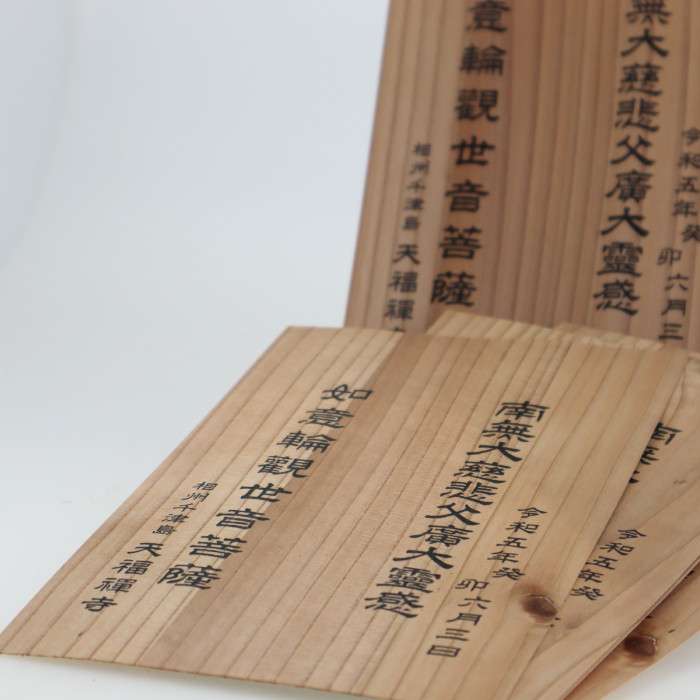 令和五年癸卯六月三
無大慈悲父廣大靈感
意輪觀世音菩薩
相州千津島 天福禪寺
令和五年癸卯六月三日
南無大慈悲父廣大靈感
如意輪觀世音菩薩
相州千津島 天福禪寺
令和五年癸
南無